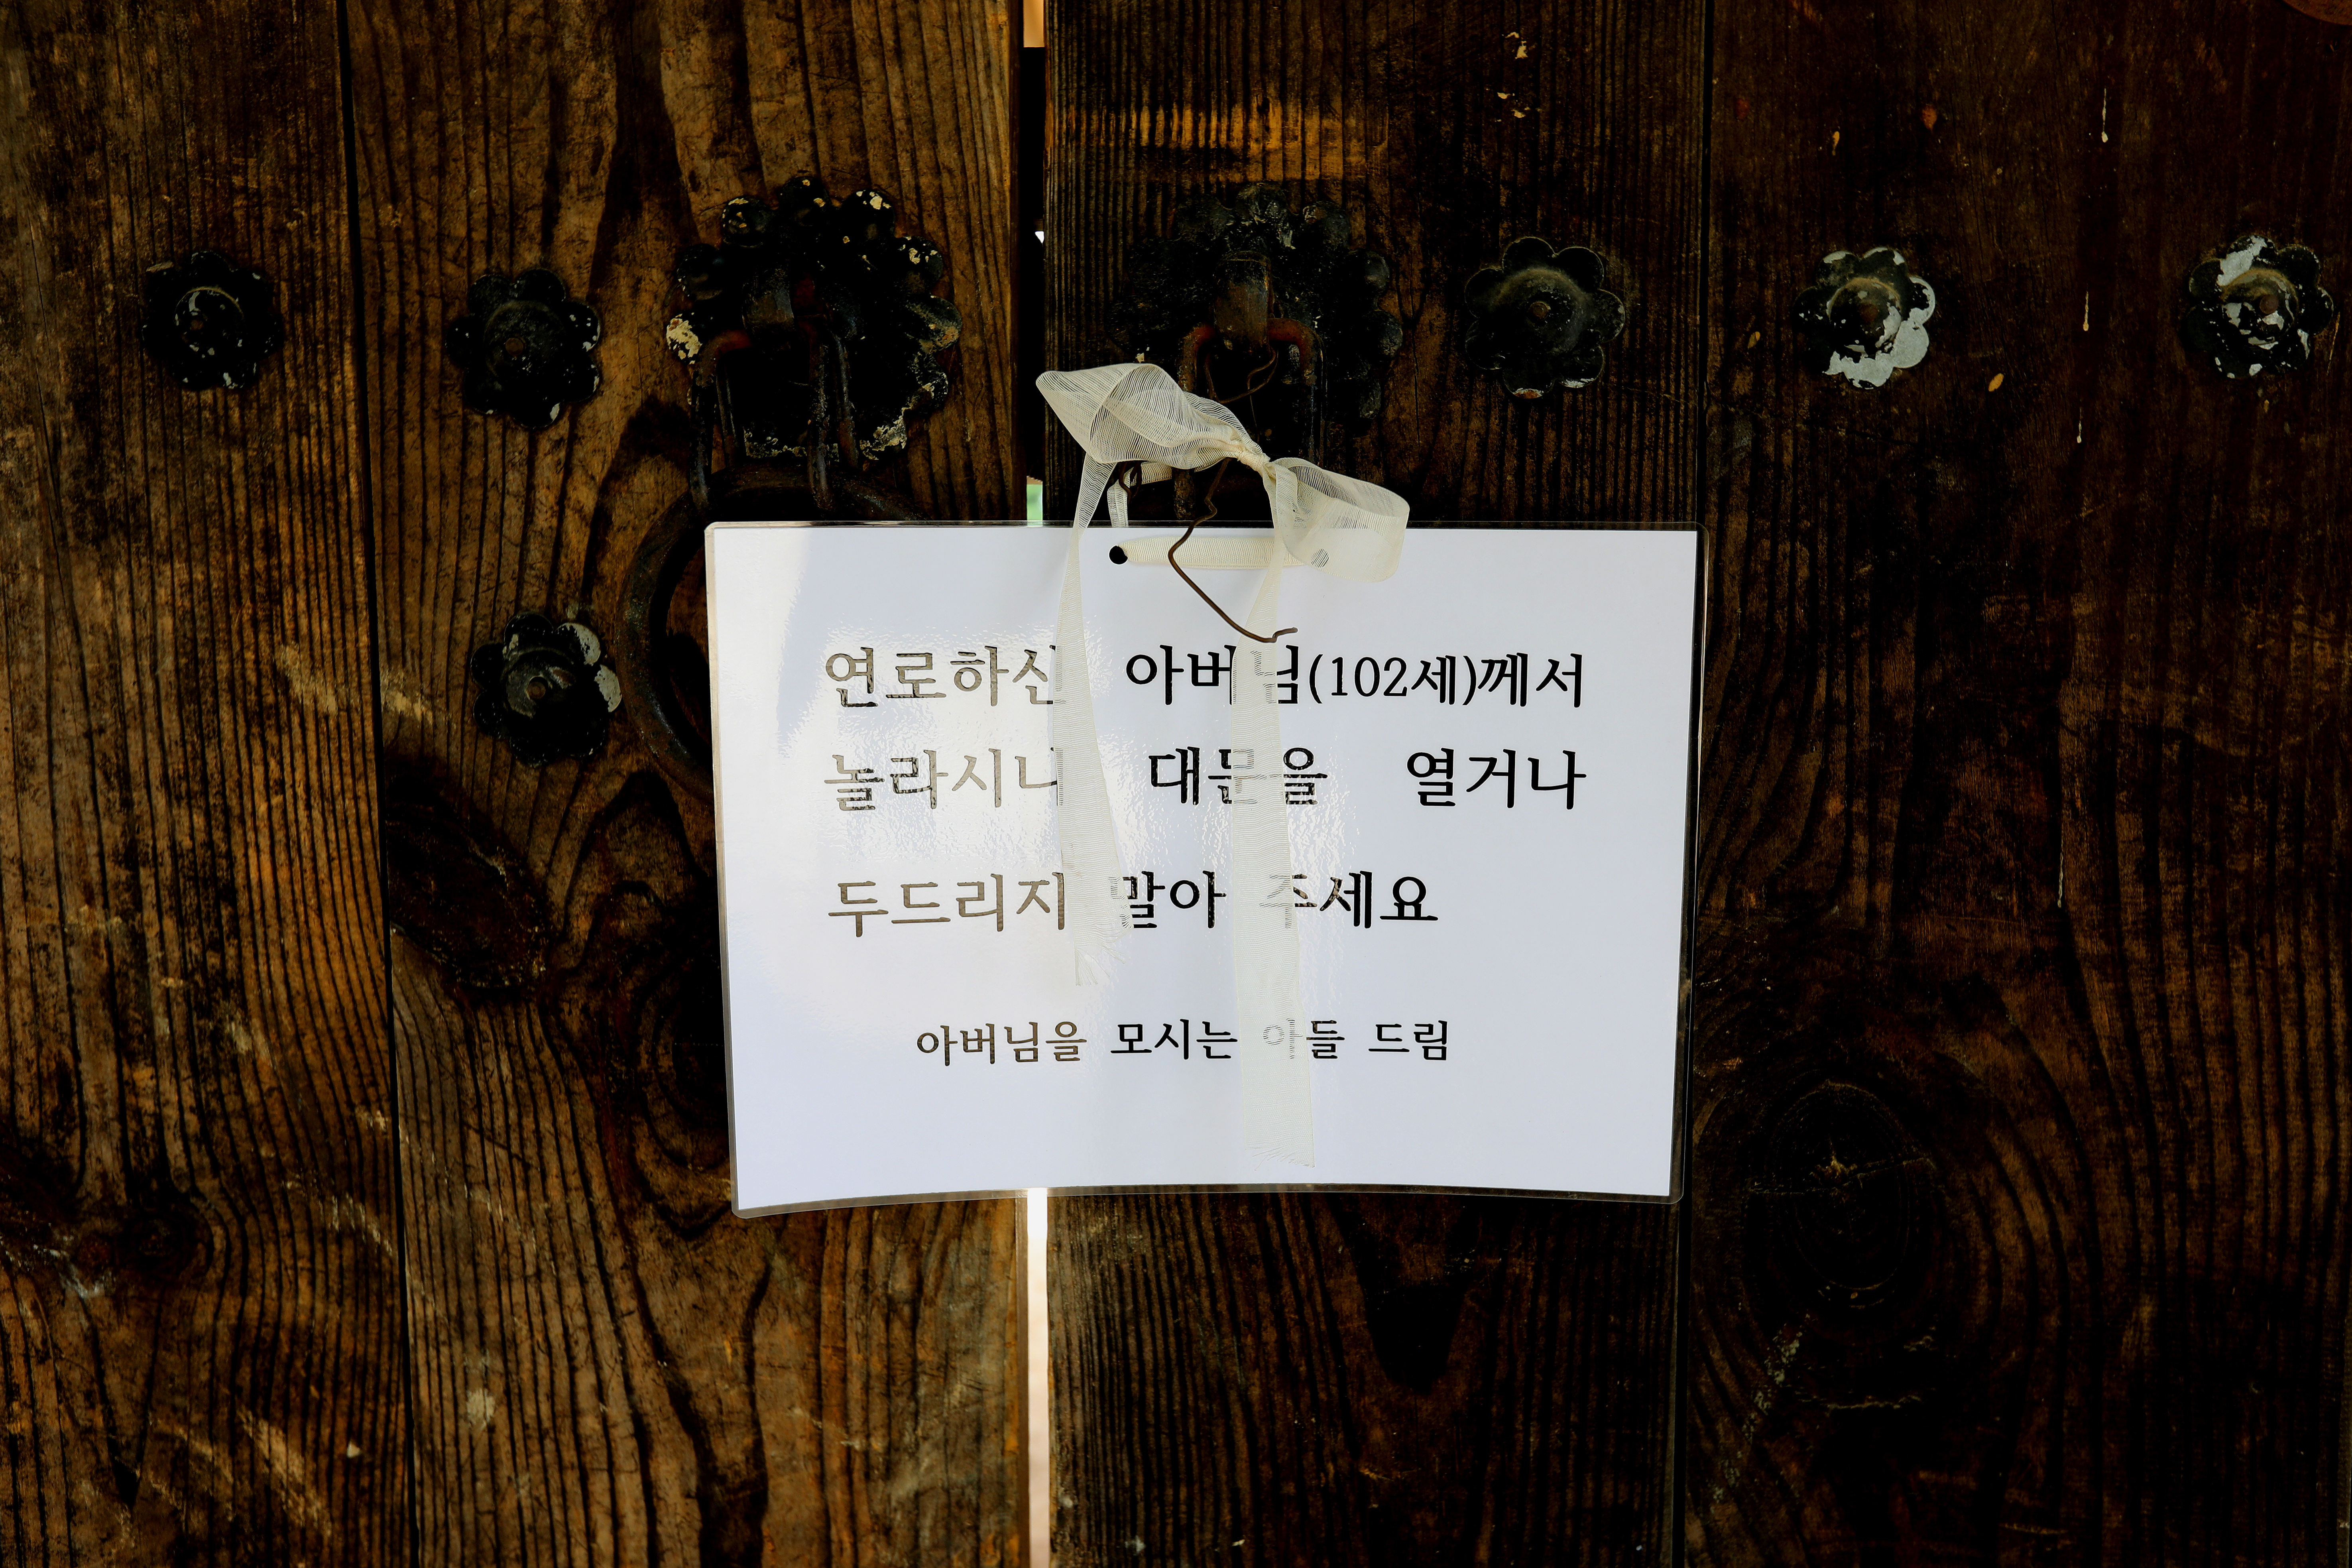 연로하신 아버님(102세)께서
놀라시니 대문을 열거나
두드리지 말아 주세요
아버님을 모시는 아들 드림